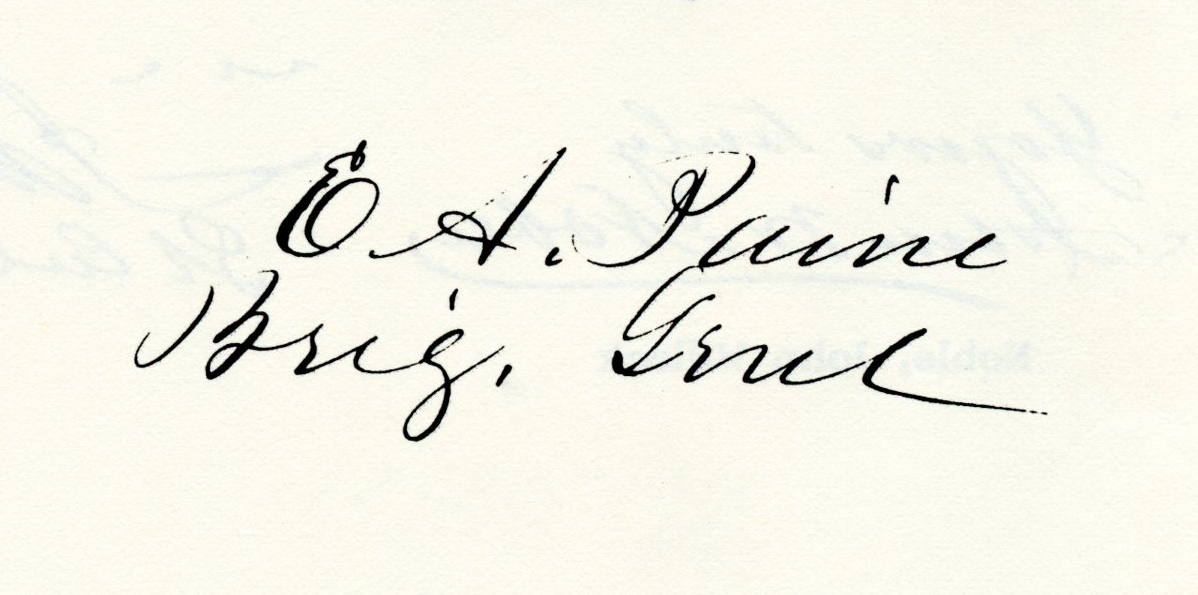 E. A. Paine
Brig. Genl